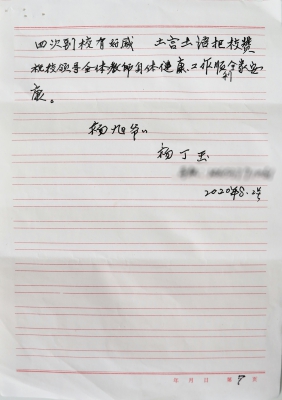 四次到校有好感　土言土语把校赞
祝校领导全体教师身体健康、工作顺利全家安
康。
杨旭
杨丁玉
2020年8.2号
年 月 日 第 页